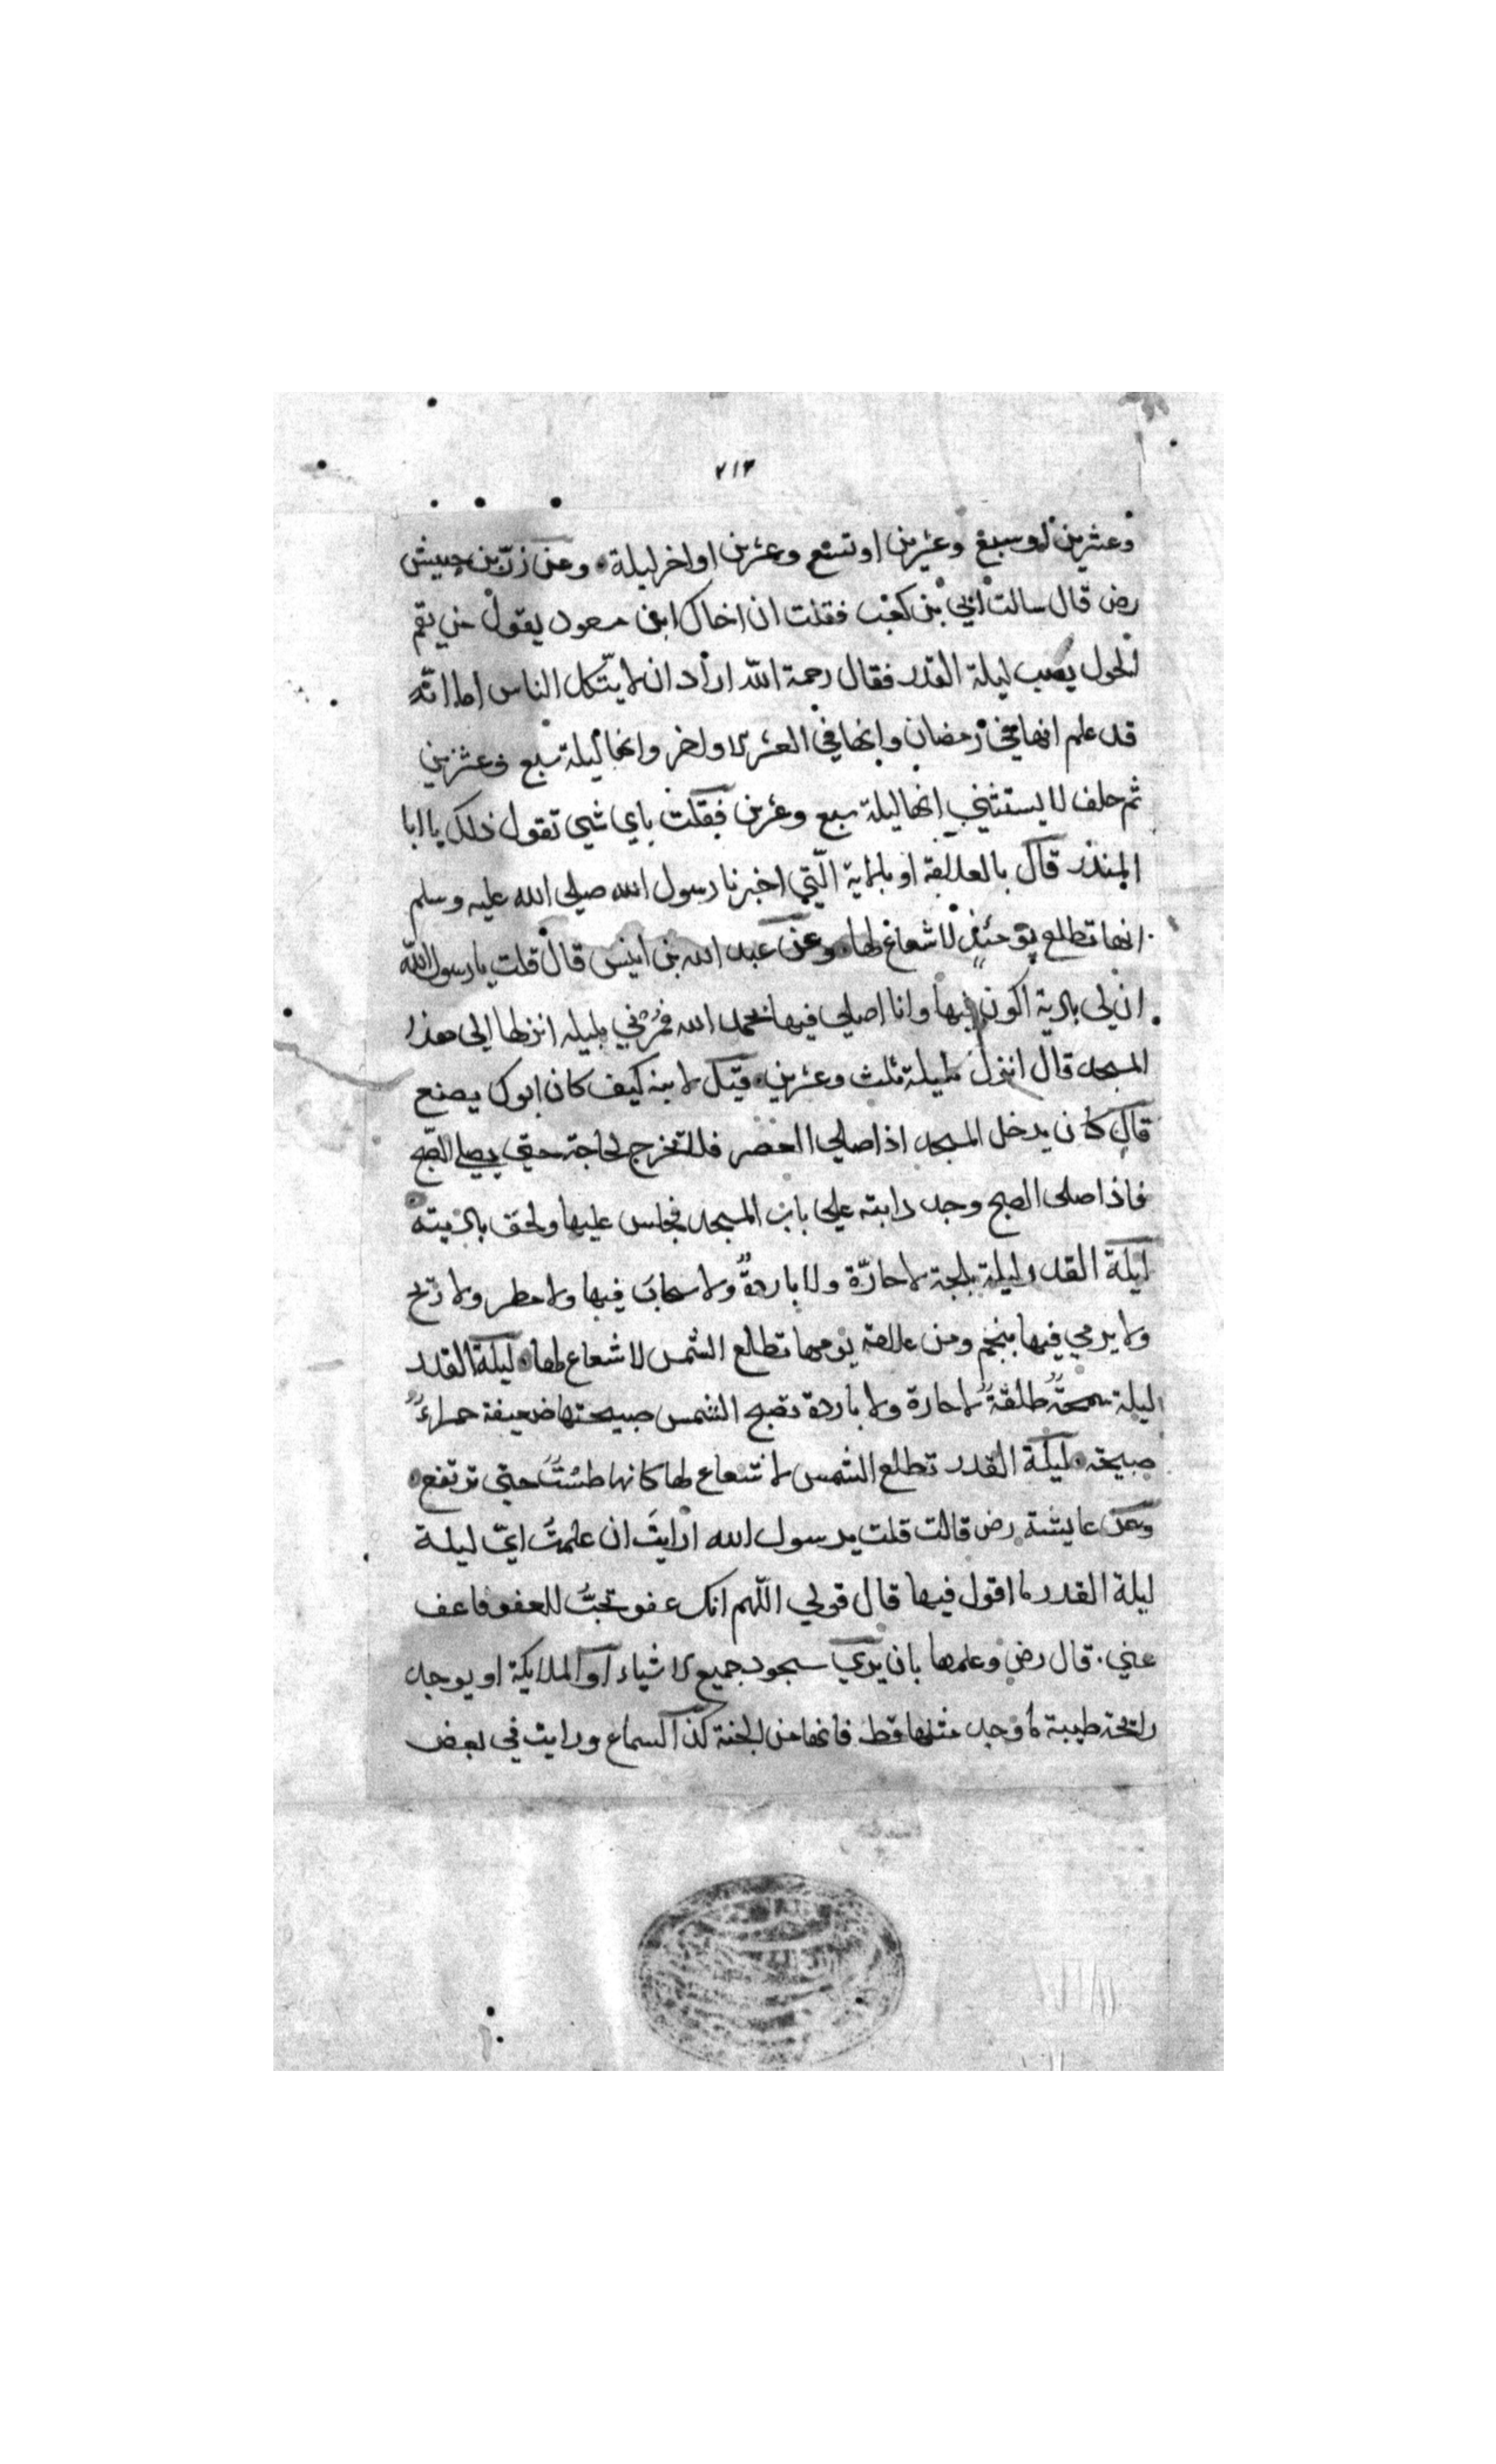 ٧١٣
وعشرين او سبع وعشرين او تسع وعشرين او اخر ليلة وعن زرّ بن حبيش
رض قال سالت ابي بن كعب فقلت ان اخاك ابن مسعود يقول من يقم
الحول يصب ليلة القدر فقال رحمة الله اراد ان لا يتّكل الناس اما انّه
قد علم انها في رمضان وانها في العشر الاواخر وانها ليلة سبع وعشرين
ثم حلف لا يستثني انها ليلة سبع وعشرين فقلت باي شي تقول ذلك يا ابا
المنذر قال بالعلامة او بالاية الّتي اخبرنا رسول الله صلي الله عليه وسلم
انها تطلع يومئذ لا شعاع لها وعن عبد الله بن انيس قال قلت يا رسول الله
ان لي بادية اكون فيها وانا اصلي فيها بحمد الله فمُرْني بليله انزلها الي هذا
المسجد قال انزل ليلة ثلث وعشرين قيل لابنه كيف كان ابوك يصنع
قال كان يدخل المسجد اذا صلي العصر فلا يخرج لحاجة حتي يصلي الصّبح
فاذا صلى الصبح وجد دابته علي باب المسجد فجلس عليها ولحق باديته
ليلة القدر ليلة بلجة لا حارّة ولا باردةٌ ولا سحابَ فيها ولا مطر ولا ريح
ولا يرمي فيها بنجم ومن علامة يومها تطلع الشمس لا شعاع لها ليلة القدر
ليلة سمحةٌ طلقةٌ لا حارة ولا باردة تصبح الشمس صبيحتها ضعيفة حمراءُ
صبيحة ليلة القدر تطلع الشمس لا شعاع لها كانها طستٌ حتي ترتفع
وعن عايشة رض قالت قلت يرسول الله ارايتَ ان علمتُ ايّ ليلة
ليلة القدر ما اقول فيها قال قولي اللّهم انك عفو تحبّ للعفو فاعف
عني. قال رض وعلمها بان يري سجود جميع الاشياء او الملايكة او يوجد
رائحة طيبة لم توجد مثلها قط فانها من الجنة كذا السماع ورايت في بعض